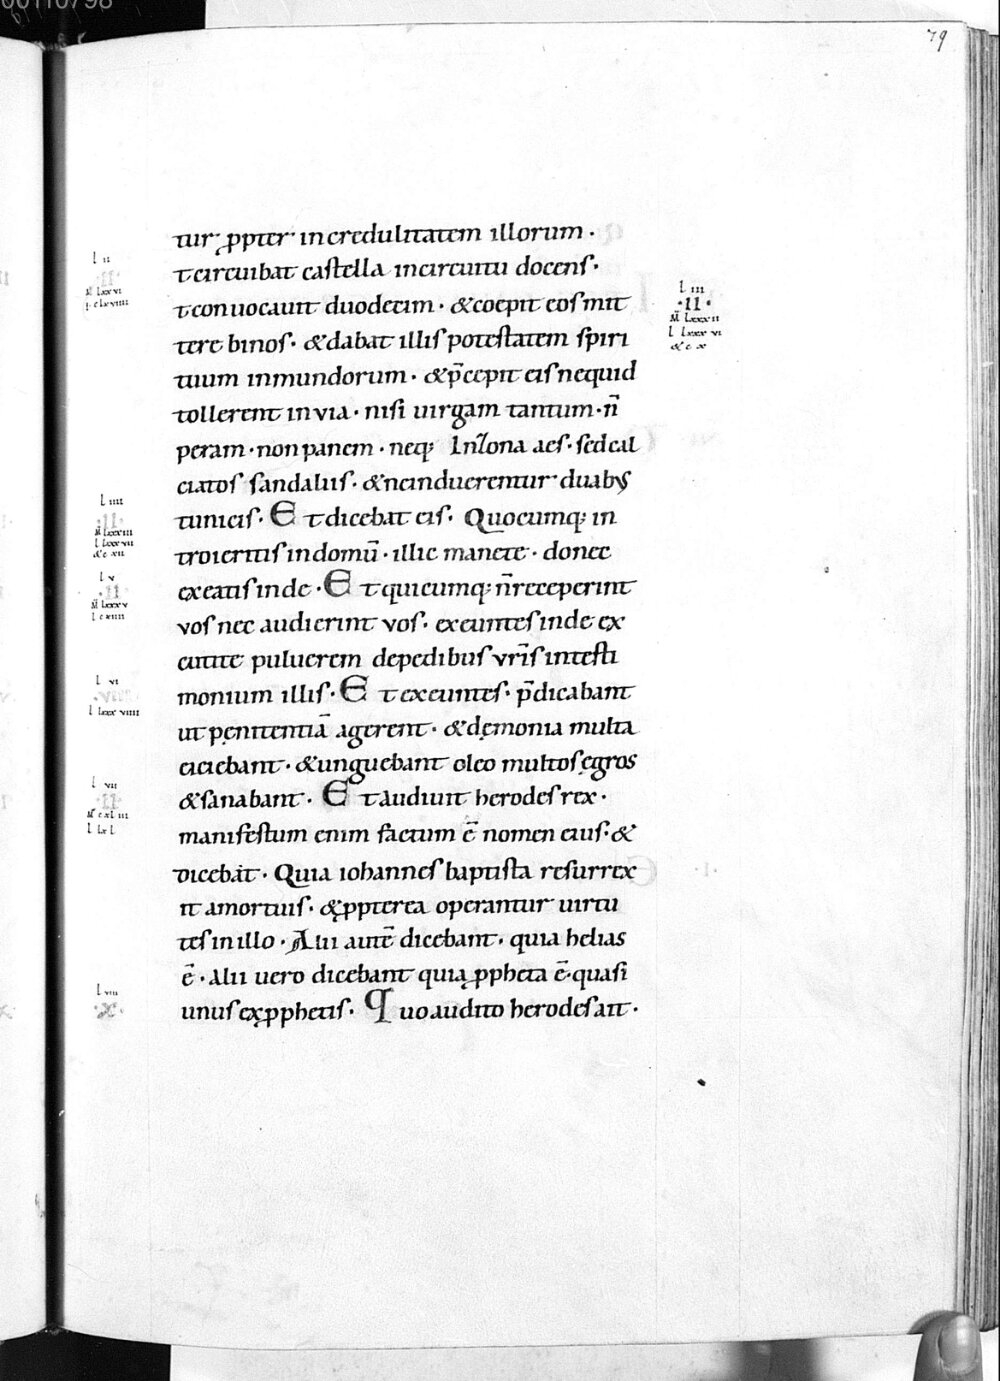 00110798
79
tur· ꝓpter incredulitatem illorum·
t circuibat castella incircuitu docens·
t conuocauit duodecim· & coepit eos mit
tere binos· & dabat illis potestatem spiri
tuum inmundorum· & p̄cepit eis nequid
tollerent in via· nisi uirgam tantum· n̄
peram· non panem· neq; Inzona aes· sed cal
ciatos sandaliis· & neinduerentur duabꝰ
tunicis· Et dicebat eis· Quocumq; in
troieritis in domū· illic manete· donec
exeatis inde· Et quicumq; n̄ receperint
vos nec audierint vos· exeuntes inde ex
cutite puluerem depedibus vr̄is intesti
monium illis· Et exeuntes· p̄dicabant
ut pęnitentiā agerent· & dęmonia multa
eiciebant· & unguebant oleo multos ęgros
& sanabant· Et Audiuit herodes rex·
manifestum enim factum ē nomen eius· &
dicebat· Quia iohannes baptista resurrex
it amortuis· & ꝓpterea operantur uirtu
tes in illo· Alii autē dicebant· quia helias
ē· Alii vero dicebant quia ꝓpheta ē· quasi
unus ex ꝓphetis· Quo audito herodes ait·
l ii
·II·
M̄ lxxvi
l clxviiii
l iii
·II·
M̄ lxxxii
l lxxxvi
&c x
l iiii
·II·
M̄ lxxxiii
l lxxxvii
&c xii
l v
·II·
M̄ lxxxv
l cxiiii
l vi
l lxxxviiii
l vii
·II·
M̄ cxliii
l lxl
l viii
·X·